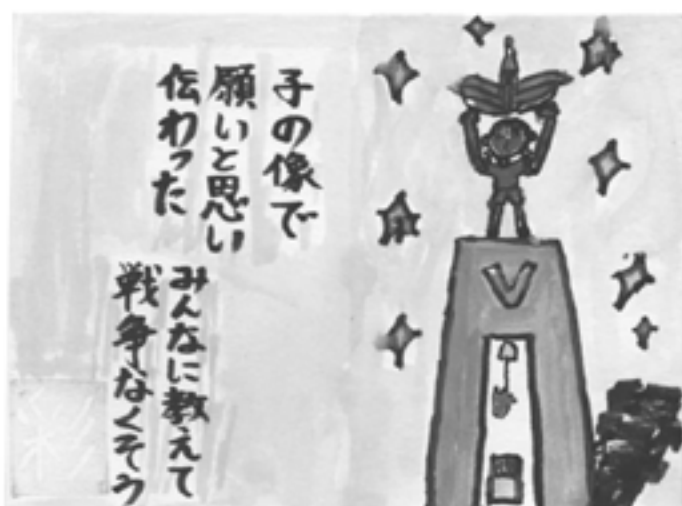 子の像で
願いと思い
伝わった
みんなに教えて
戦争なくそう
彩